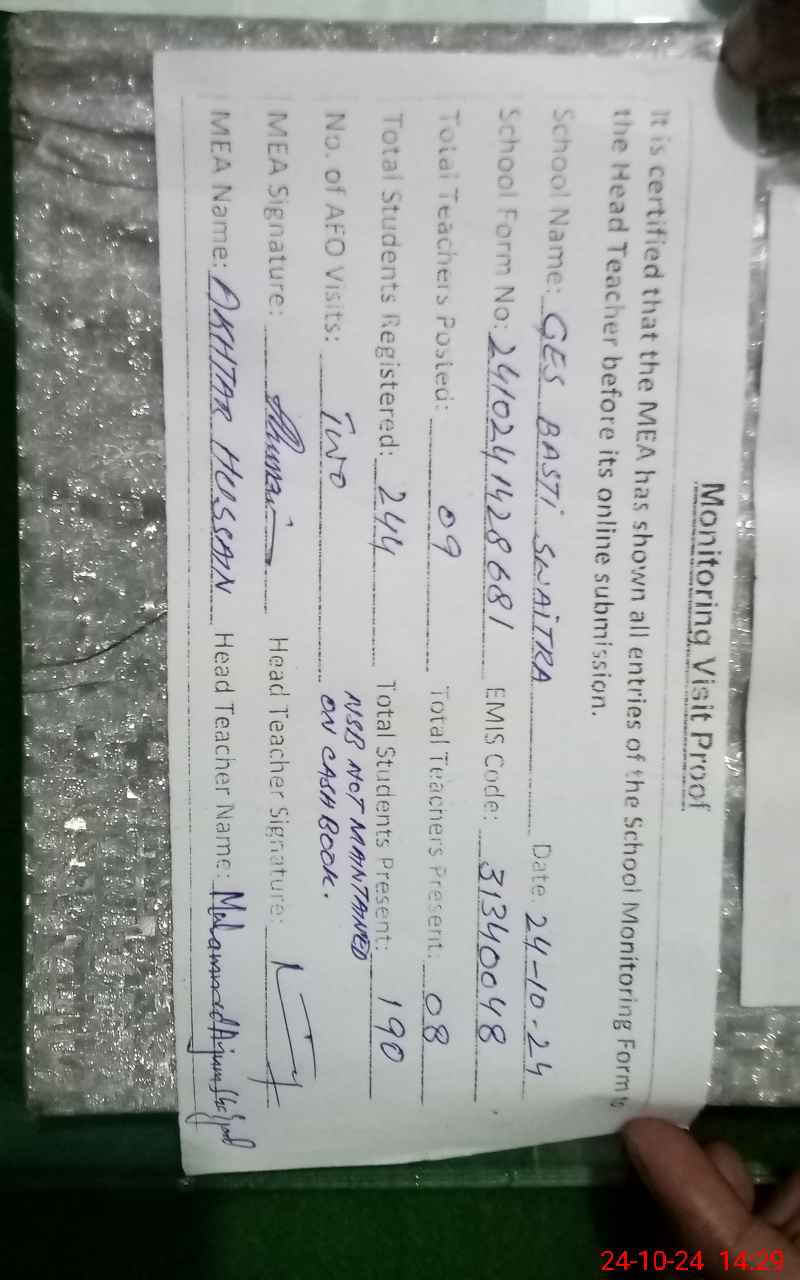 Monitoring Visit Proof
It is certified that the MEA has shown all entries of the School Monitoring Form to
the Head Teacher before its online submission.
School Name: GES BASTI SWAITRA Date: 24-10-24
School Form No: 2410241428681 EMIS Code: 31340048
Total Teachers Posted: 09 Total Teachers Present: 08
Total Students Registered: 244 Total Students Present: 190
No. of AEO Visits: Two NSB NOT MAINTANED
ON CASH BOOK.
MEA Signature: Head Teacher Signature:
MEA Name: AKHTAR HUSSAIN Head Teacher Name: Muhammad
24-10-24 14:29